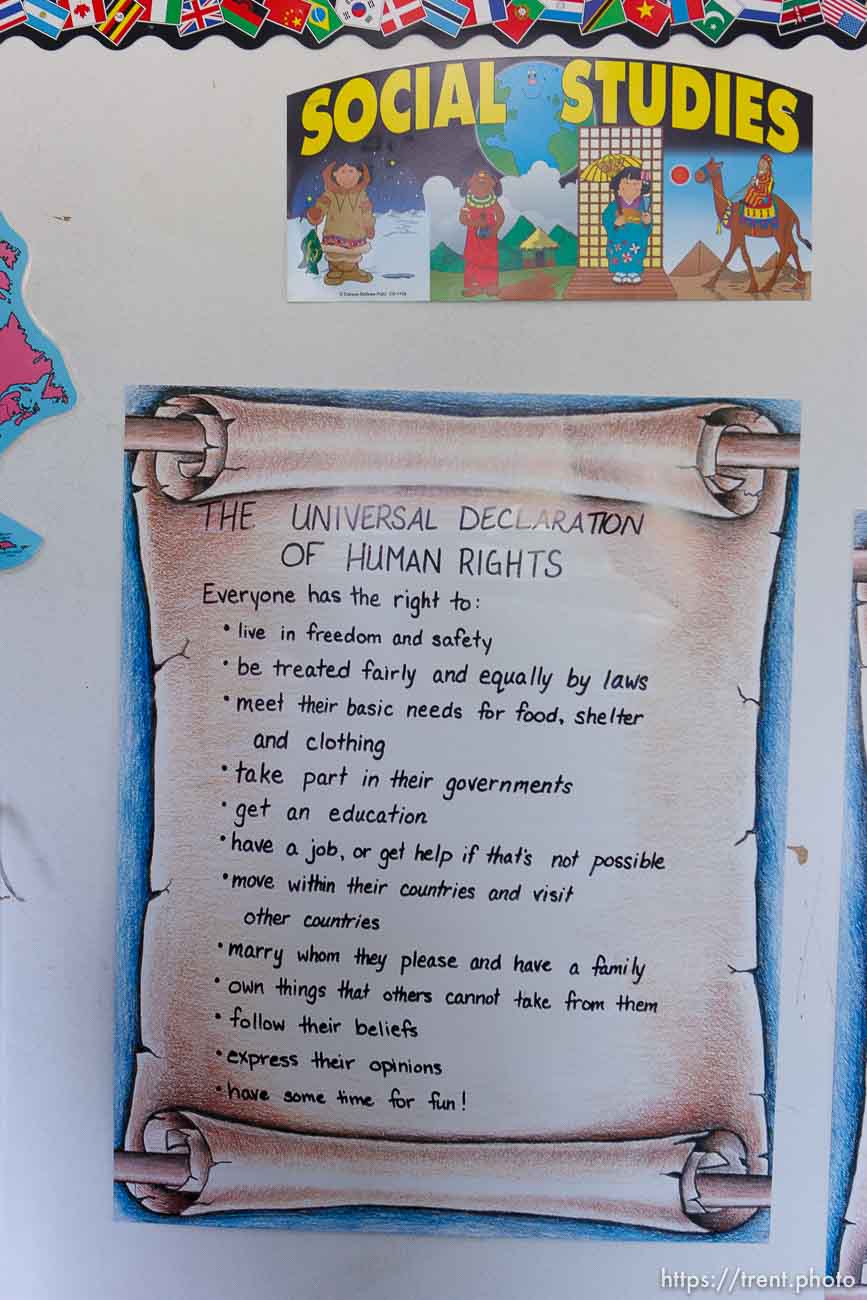 SOCIAL STUDIES
THE UNIVERSAL DECLARATION
OF HUMAN RIGHTS
Everyone has the right to:
• live in freedom and safety
• be treated fairly and equally by laws
• meet their basic needs for food, shelter
and clothing
• take part in their governments
• get an education
• have a job, or get help if that's not possible
• move within their countries and visit
other countries
• marry whom they please and have a family
• own things that others cannot take from them
• follow their beliefs
• express their opinions
• have some time for fun!
https://trent.photo